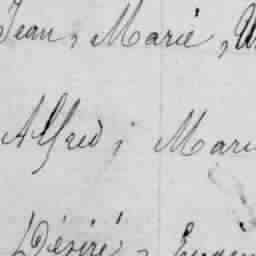 Jean, Marie,
Alfred, Mari
Désiré, Eugèn